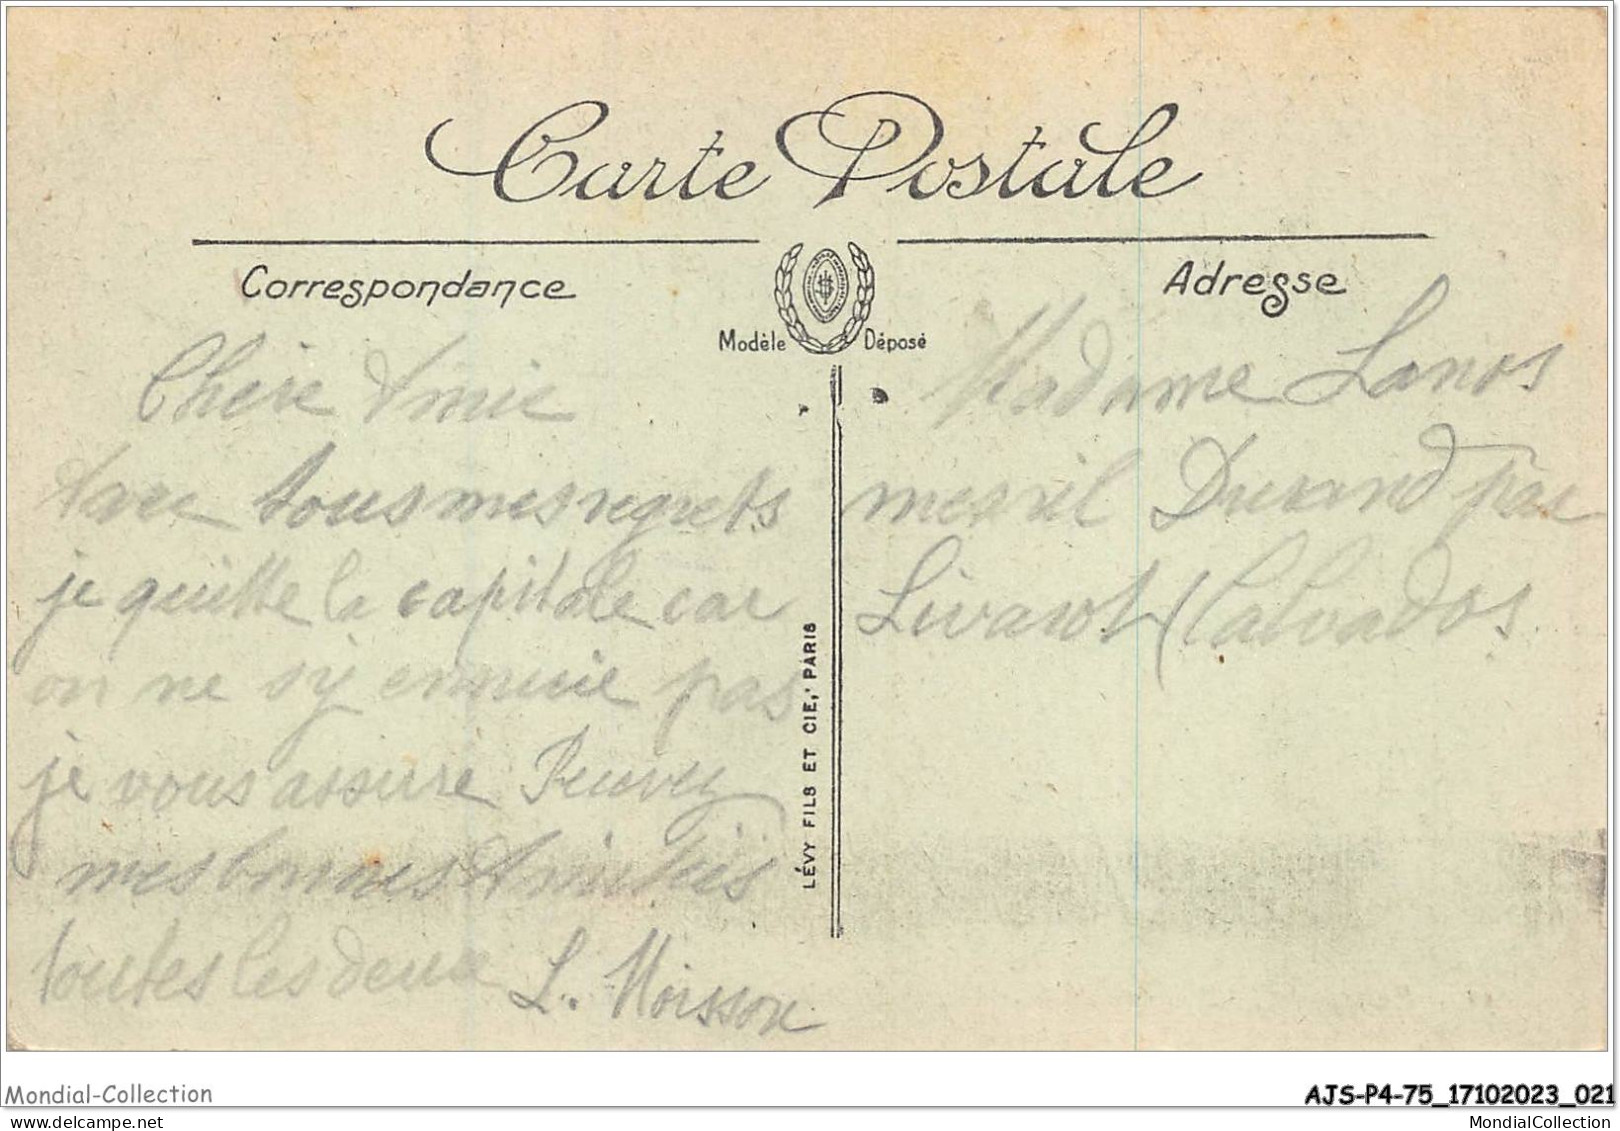 Carte Postale
Correspondance
Adresse
Modèle Déposé
Chère Amie
Avec tous mes regrets
je quitte la capitale car
on ne s'y ennuie pas
je vous assure Recevez
mes bonnes Amitiés
toutes les deux L. Moisson
LÉVY FILS ET CIE, PARIS
Madame Lanos
mesnil Durand par
Livarot (Calvados
Mondial-Collection
AJS-P4-75_17102023_021
https://www.delcampe.net
MondialCollection